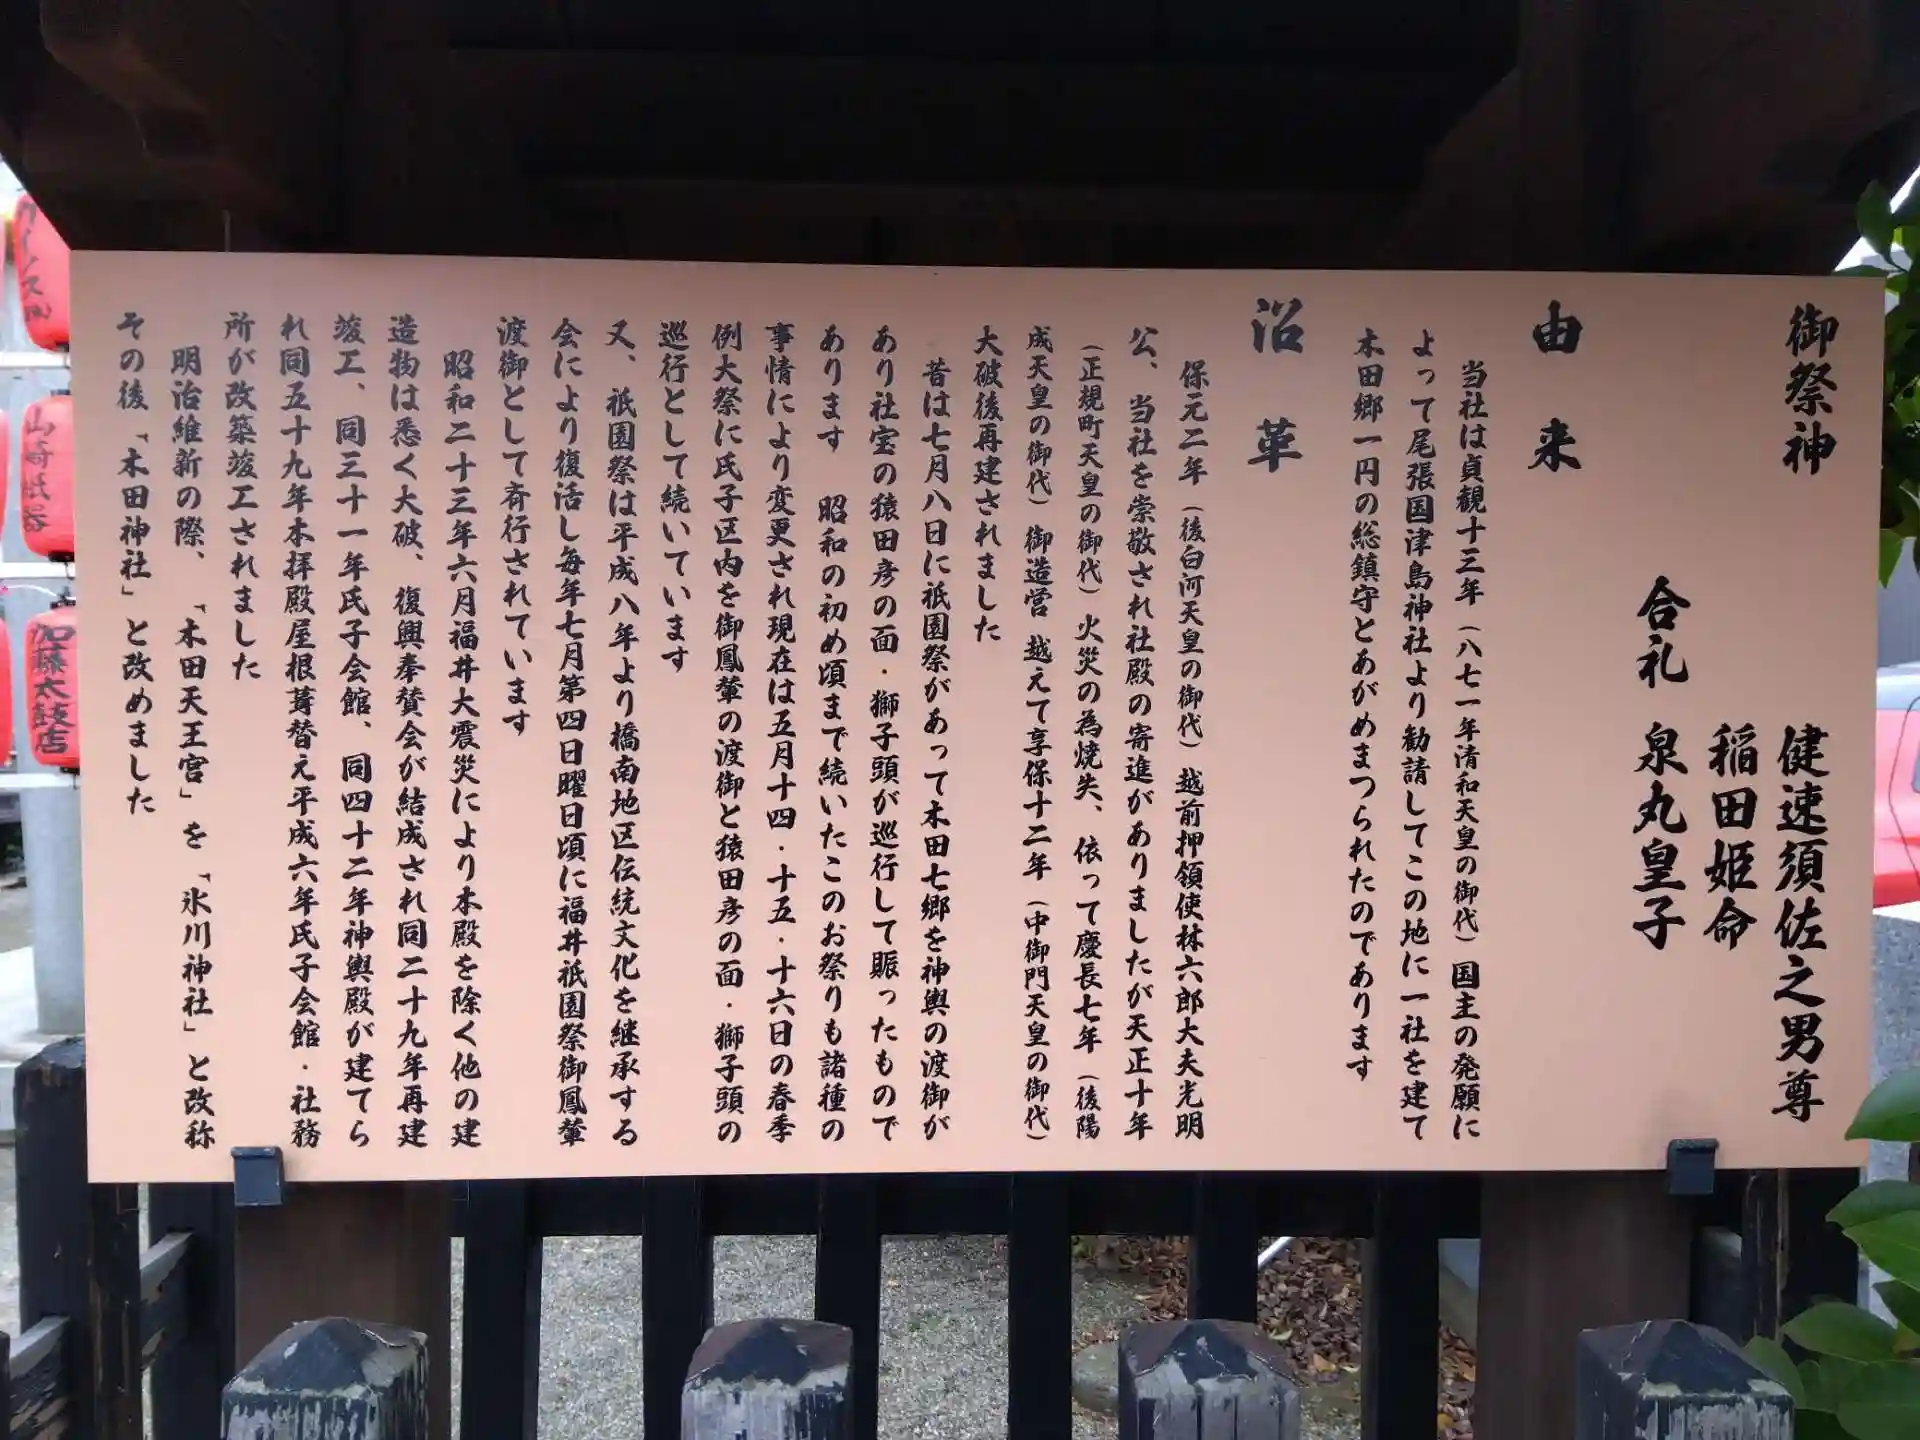 御祭神
健速須佐之男尊
稲田姫命
合礼 泉丸皇子
由来
当社は貞観十三年（八七一年清和天皇の御代）国主の発願に
よって尾張国津島神社より勧請してこの地に一社を建て
木田郷一円の総鎮守とあがめまつられたのであります
沿革
保元二年（後白河天皇の御代）越前押領使林六郎大夫光明
公、当社を崇敬され社殿の寄進がありましたが天正十年
（正規町天皇の御代）火災の為焼失、依って慶長七年（後陽
成天皇の御代）御造営 越えて享保十二年（中御門天皇の御代）
大破後再建されました
昔は七月八日に祇園祭があって木田七郷を神輿の渡御が
あり社宝の猿田彦の面・獅子頭が巡行して賑ったもので
あります 昭和の初め頃まで続いたこのお祭りも諸種の
事情により変更され現在は五月十四・十五・十六日の春季
例大祭に氏子区内を御鳳輦の渡御と猿田彦の面・獅子頭の
巡行として続いています
又、祇園祭は平成八年より橋南地区伝統文化を継承する
会により復活し毎年七月第四日曜日頃に福井祇園祭御鳳輦
渡御として斉行されています
昭和二十三年六月福井大震災により本殿を除く他の建
造物は悉く大破、復興奉賛会が結成され同二十九年再建
竣工、同三十一年氏子会館、同四十二年神輿殿が建てら
れ同五十九年本拝殿屋根葺替え平成六年氏子会館・社務
所が改築竣工されました
明治維新の際、「木田天王宮」を「氷川神社」と改称
その後「木田神社」と改めました
山崎紙器
加藤太鼓店